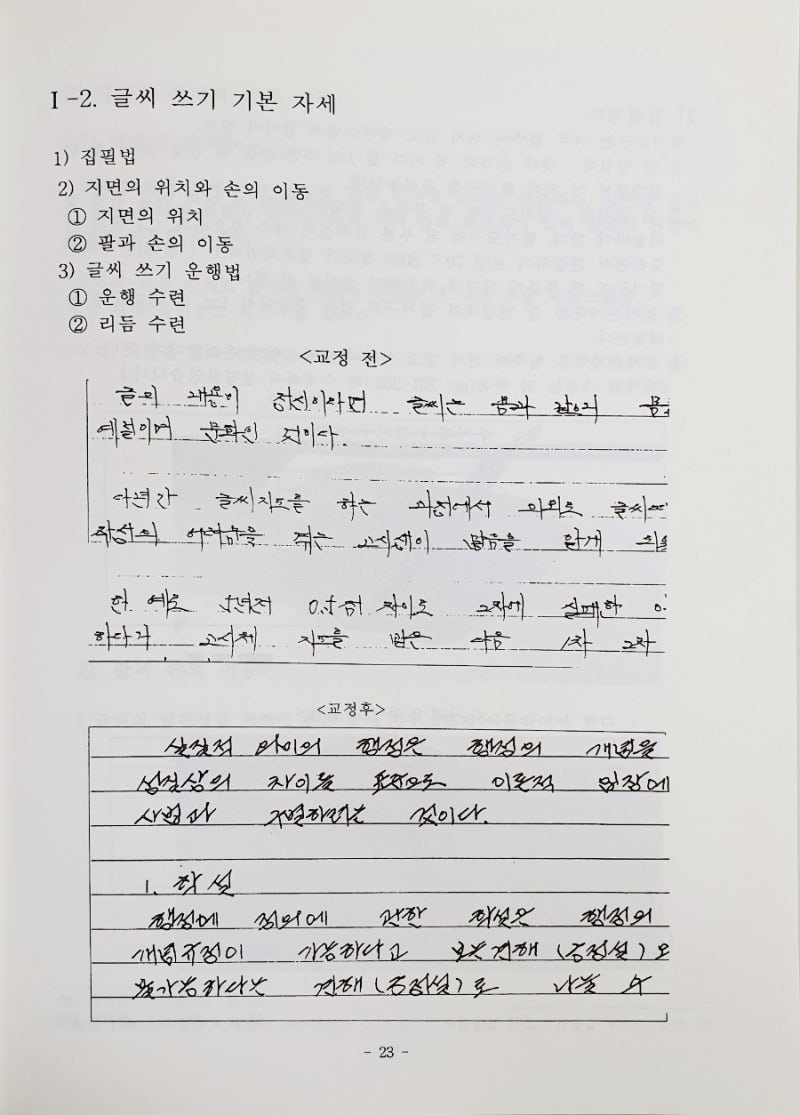 Ⅰ-2. 글씨 쓰기 기본 자세
1) 집필법
2) 지면의 위치와 손의 이동
① 지면의 위치
② 팔과 손의 이동
3) 글씨 쓰기 운행법
① 운행 수련
② 리듬 수련
<교정 전>
글의 내용이 정신이라면 글씨는 몸과 같이
예절이며 문화인 것이다.
다년간 글씨지도를 하는 과정에서 의외로 글씨
어려움을 겪는 고시생이 많음을 알게
한 예로 5년전 0.5점 차이로 2차에 실패한
하다가 고시체 지도를 받은 다음 1차 2차
<교정후>
실질적 의의의 행정은 행정의 개념을
성질상의 차이를 표준으로 이론적 입장에
사법과 구별하려는 것이다.
1. 학설
행정에 정의에 관한 학설은 행정의
개념규정이 가능하다고 보는견해 (긍정설)와
불가능하다는 견해 (부정설)로 나눌 수
- 23 -